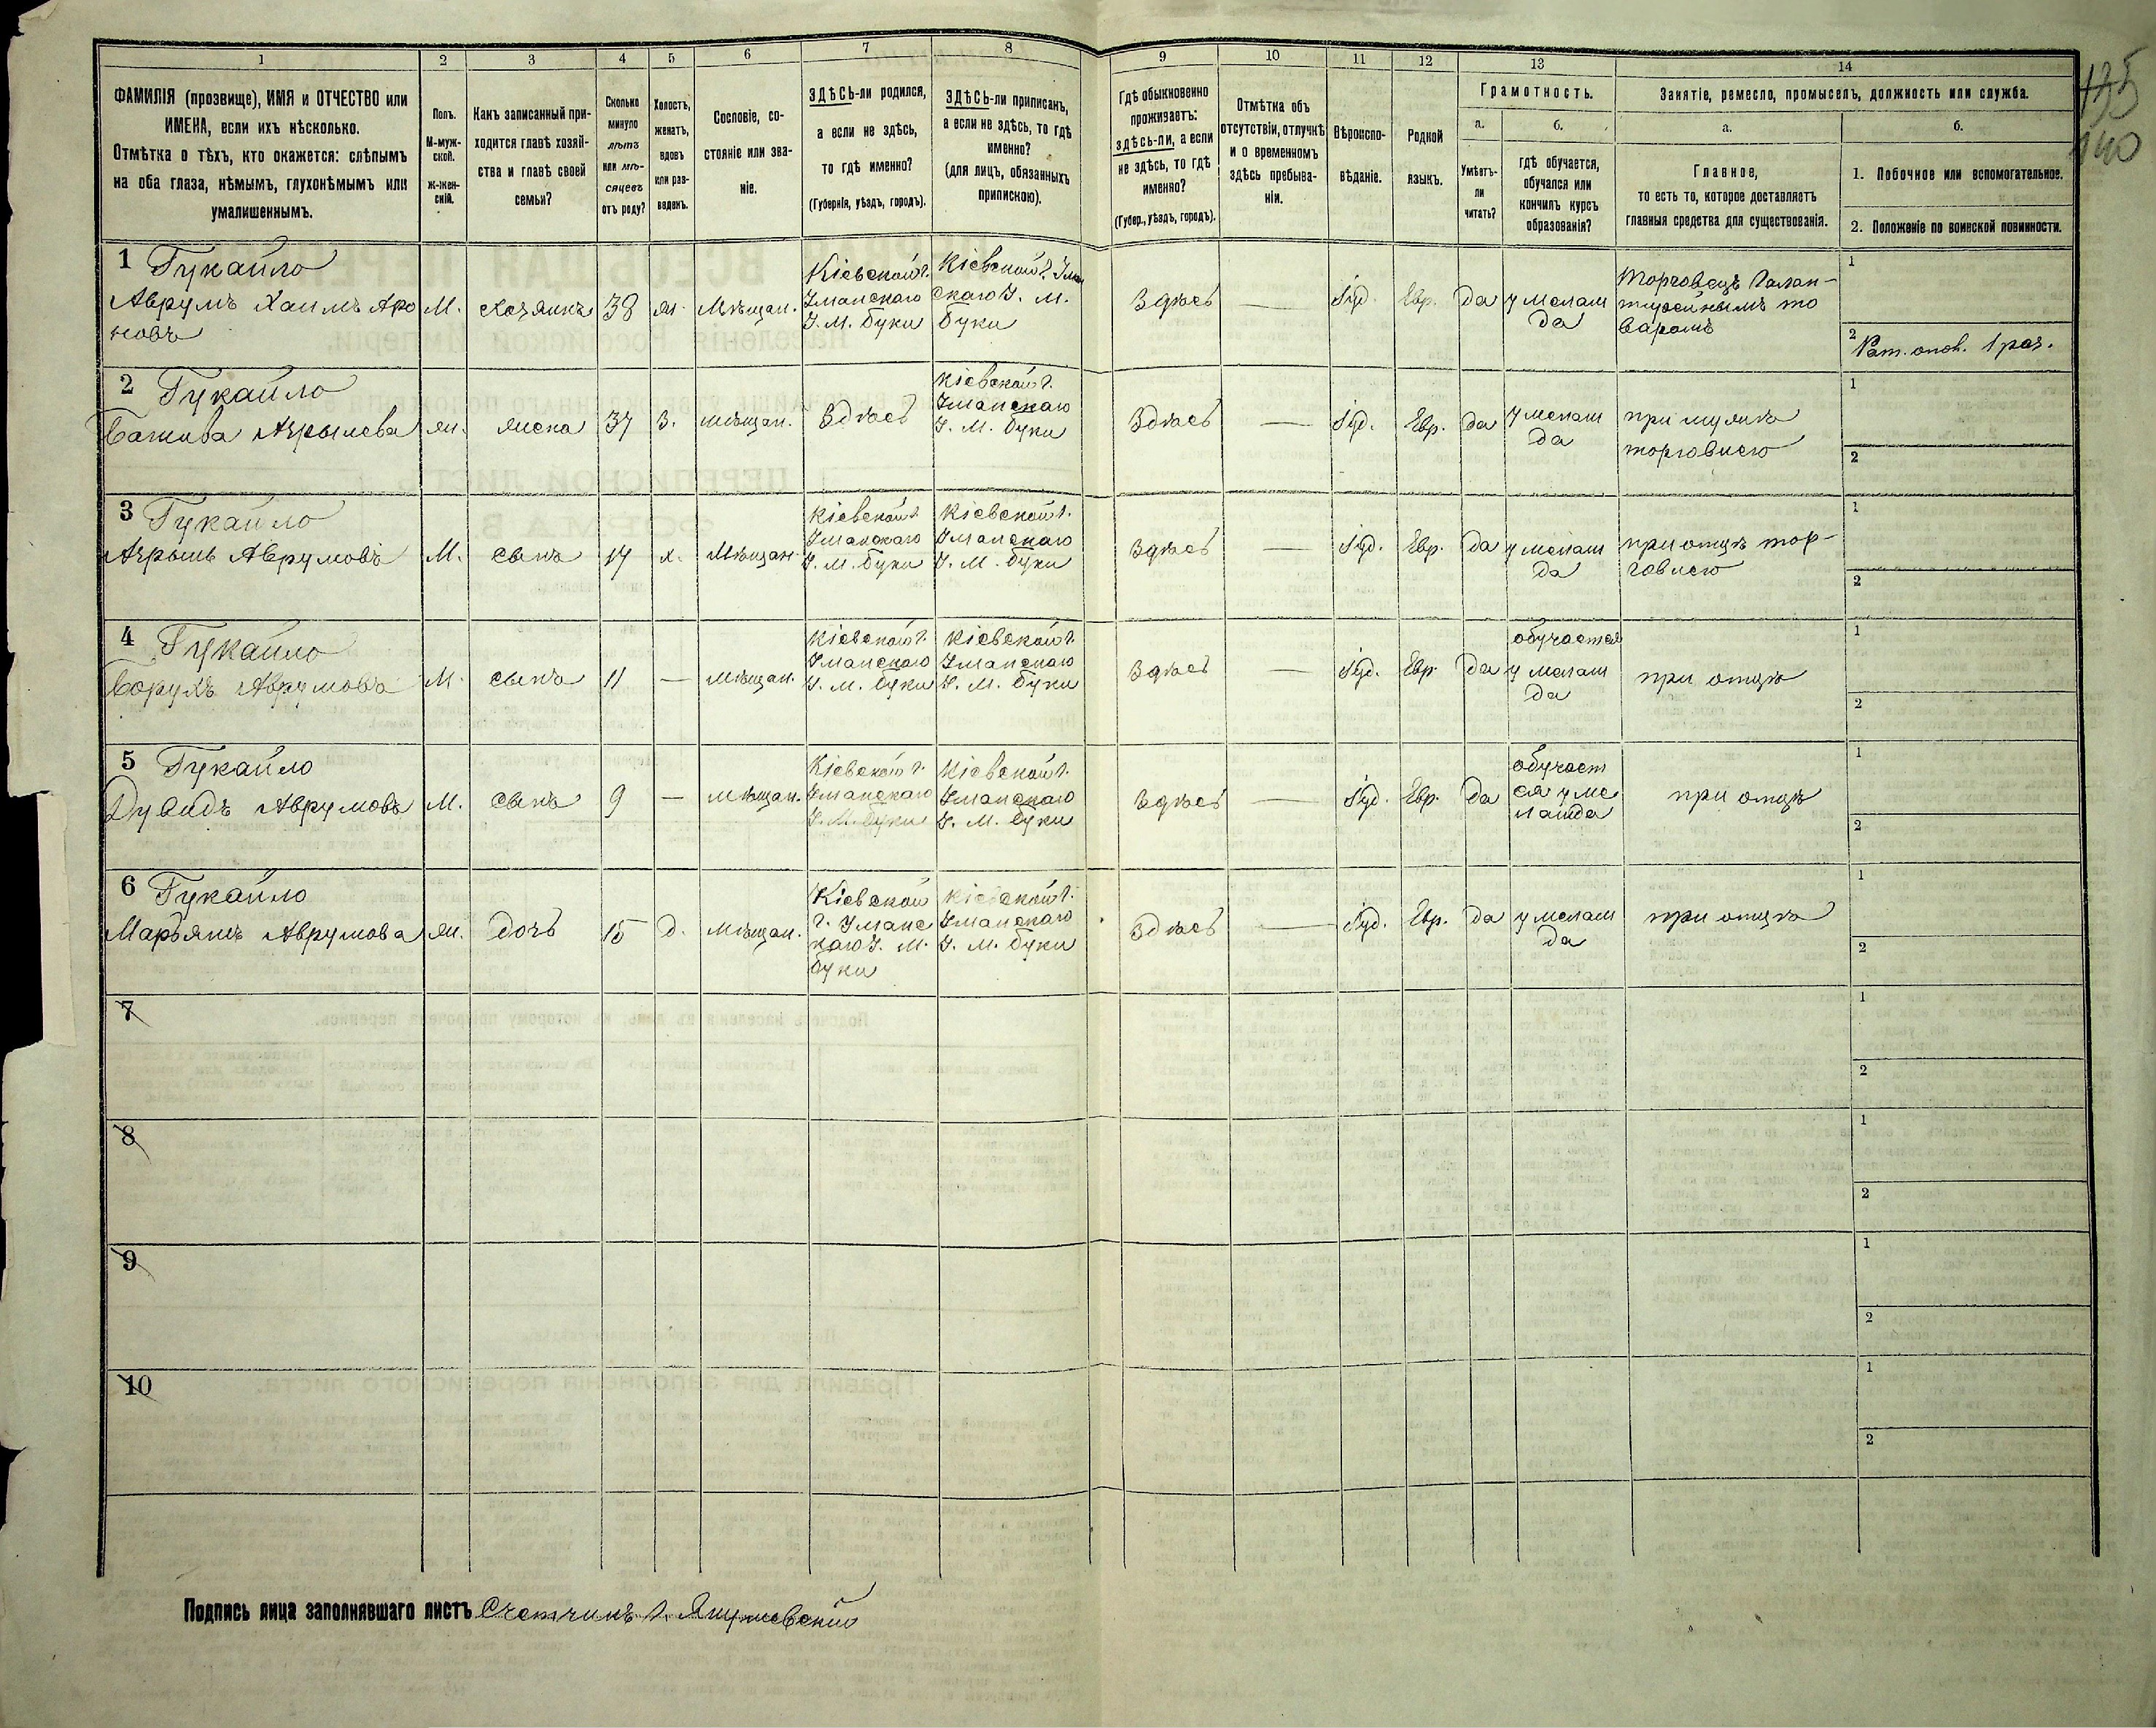 135
140
1 2 3 4 5 6 7 8 9 10 11 12 13 14
ФАМИЛІЯ (прозвище), ИМЯ и ОТЧЕСТВО или
ИМЕНА, если ихъ нѣсколько.
Отмѣтка о тѣхъ, кто окажется: слѣпымъ
на оба глаза, нѣмымъ, глухонѣмымъ или
умалишеннымъ.
Полъ.
М-муж-
ской.
Ж-жен-
скій.
Какъ записанный при-
ходится главѣ хозяй-
ства и главѣ своей
семьи?
Сколько
минуло
лѣтъ
или мѣ-
сяцевъ
отъ роду?
Холостъ,
женатъ,
вдовъ
или раз-
веденъ.
Сословіе, со-
стояніе или зва-
ніе.
ЗДѢСЬ-ли родился,
а если не здѣсь,
то гдѣ именно?
(Губернія, уѣздъ, городъ).
ЗДѢСЬ-ли приписанъ,
а если не здѣсь, то гдѣ
именно?
(для лицъ, обязанныхъ
припискою).
Гдѣ обыкновенно
проживаетъ:
здѣсь-ли, а если
не здѣсь, то гдѣ
именно?
(Губер., уѣздъ, городъ).
Отмѣтка объ
отсутствіи, отлучкѣ
и о временномъ
здѣсь пребыва-
ніи.
Вѣроиспо-
вѣданіе.
Родной
языкъ.
Грамотность.
а.
Умѣетъ-
ли
читать?
б.
гдѣ обучается,
обучался или
кончилъ курсъ
образованія?
Занятіе, ремесло, промыселъ, должность или служба.
а.
Главное,
то есть то, которое доставляетъ
главныя средства для существованія.
б.
1. Побочное или вспомогательное.
2. Положеніе по воинской повинности.
1 Гукайло
Аврумъ Хаимъ Аро
новъ
М.
Хозяинъ
38
ж.
Мѣщан.
Кіевской г.
Уманскаго
У. М. Буки
Кіевской г. Уман
скаго У. М.
Буки
Здѣсь
—
Іуд.
Евр.
да
у мелам
да
Торговецъ Галан-
терейнымъ то
варомъ
1
2 Рат. опол. 1 раз.
2 Гукайло
ж.
жена
37
З.
мѣщан.
Здѣсь
Кіевской г.
Уманскаго
У. М. Буки
Здѣсь
—
Іуд.
Евр.
да
у мелам
да
при мужѣ
торговлею
1
2
3 Гукайло
Аврумовъ
М.
сынъ
17
х.
Мѣщан.
Кіевской г.
Уманскаго
У. М. Буки
Кіевской г.
Уманскаго
У. М. Буки
Здѣсь
—
Іуд.
Евр.
да
у мелам
да
при отцѣ тор-
говлею
1
2
4 Гукайло
Борухъ Аврумовъ
М.
сынъ
11
—
Мѣщан.
Кіевской г.
Уманскаго
У. М. Буки
Кіевской г.
Уманскаго
У. М. Буки
Здѣсь
—
Іуд.
Евр.
да
обучается
у мелам
да
при отцѣ
1
2
5 Гукайло
Дувидъ Аврумовъ
М.
сынъ
9
—
мѣщан.
Кіевской г.
Уманскаго
У. М. Буки
Кіевской г.
Уманскаго
У. М. Буки
Здѣсь
—
Іуд.
Евр.
да
обучает
ся у ме
ламда
при отцѣ
1
2
6 Гукайло
Марьямъ Аврумова
ж.
дочь
15
д.
мѣщан.
Кіевской
г. Уманс
каго У. М.
Буки
Кіевской г.
Уманскаго
У. М. Буки
Здѣсь
—
Іуд.
Евр.
да
у мелам
да
при отцѣ
1
2
7
1
2
8
1
2
9
1
2
10
1
2
Подпись лица заполнявшаго листъ Счетчикъ